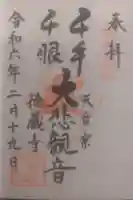 奉拝
天台宗
千手
千眼
大悲観音
令和六年二月十九日